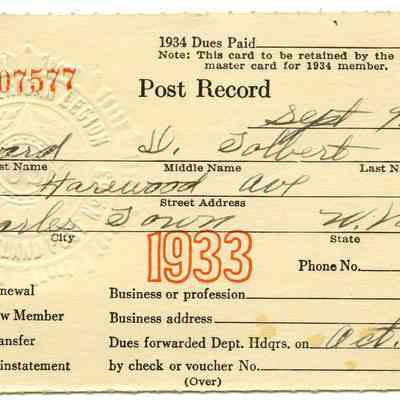 1934 Dues Paid
Note: This card to be retained by the
master card for 1934 member.
07577
Post Record
Sept 9
ward D. Tolvert
st Name Middle Name Last N
Harewood Ave
Street Address
arles Town W. V
City State
1933
Phone No.
newal Business or profession
w Member Business address
ansfer Dues forwarded Dept. Hdqrs. on Oct.
instatement by check or voucher No.
(Over)